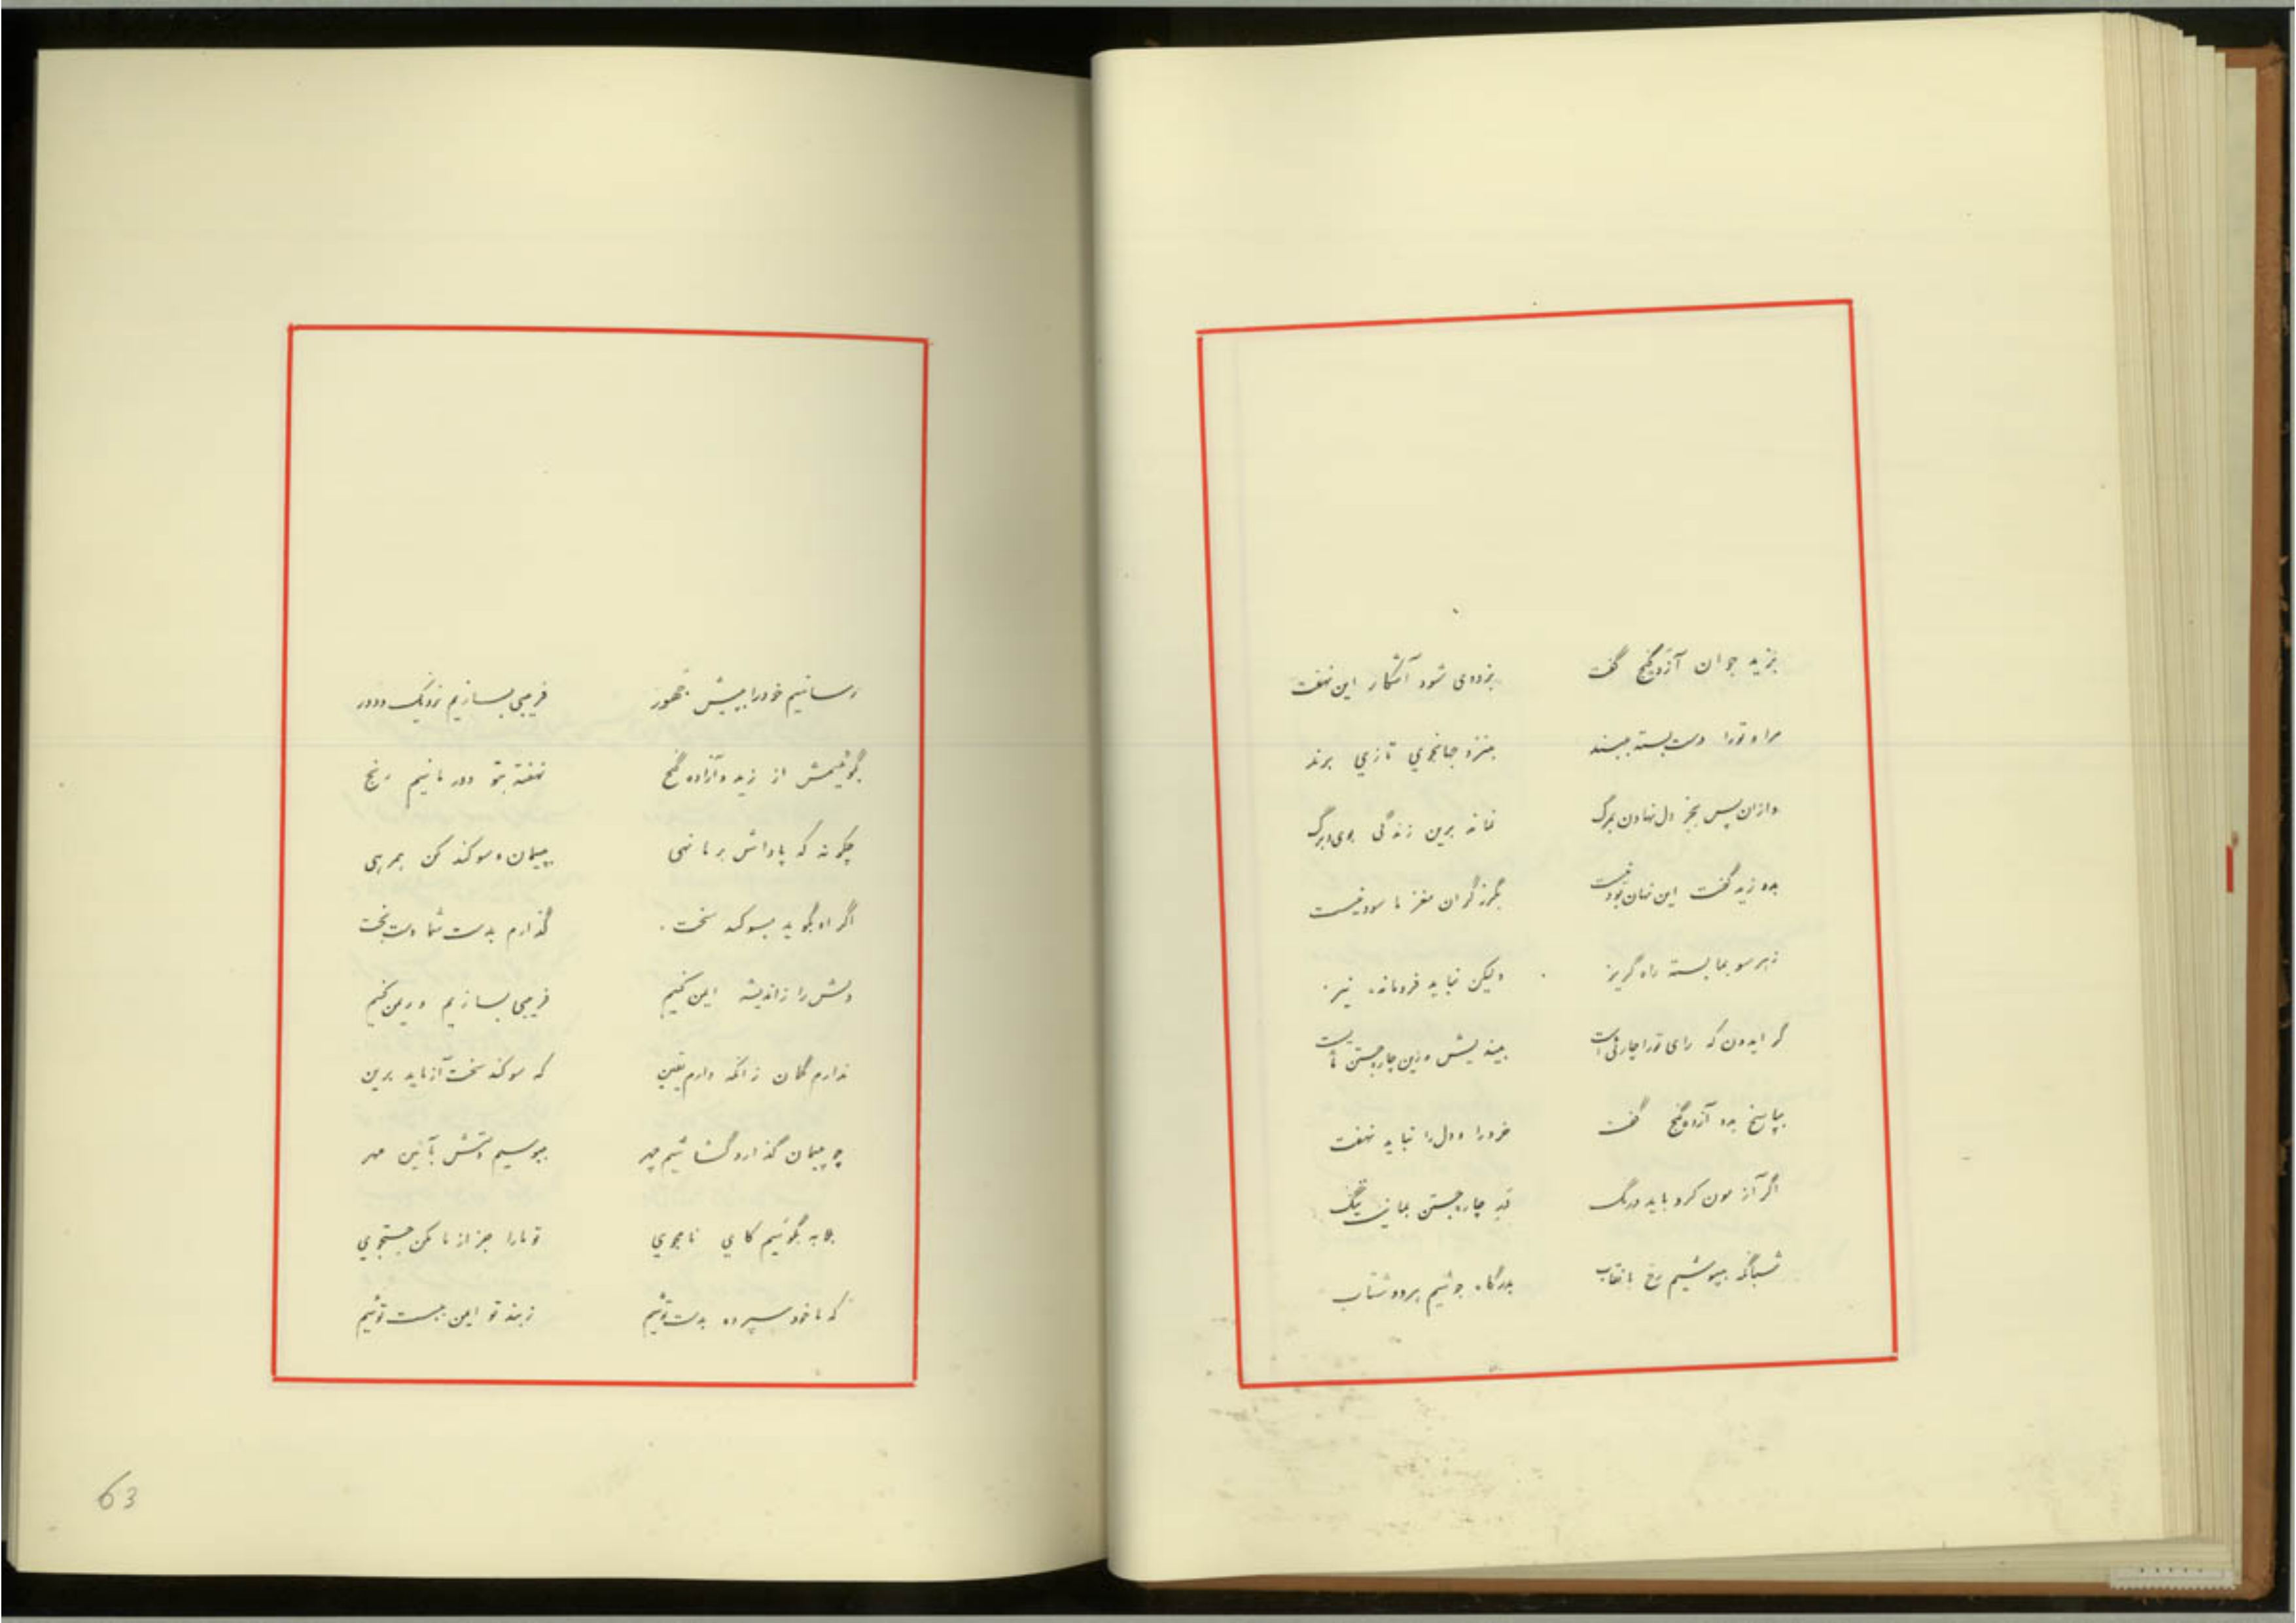 بزید جوان آزده گنج گفت بزودی شود آشکار این نهفت
مرا و تو را دست بسته ببند بنزد جهانجوی تازی برند
وازان پس بجز دل نهادن بمرگ نماند برین زندگی بوی و برگ
بدو زید گفت این نهان بود نیست بگرز گران مغز ما سود نیست
زهر سو بما بسته راه گریز ولیکن نباید فرومانده نیز
گر ایدون که رای تو را چاره‌ئی است بیندیش وزین چاره جستن
بپاسخ بدو آزده گنج گفت خرد را و دل را نباید نهفت
اگر آزمون کرد باید درنگ چاره جستن بما نیست تنگ
شبانگه بپوشیم رخ با نقاب بدرگاه جوئیم بر دو شتاب
رسانیم خود را بپیش ظهور فریبی بسازیم نزدیک و دور
بگوئیمش از زید و آزاده گنج نهفته بتو دور مانیم رنج
چگونه که پاداش بر ما نهی پیمان و سوگند کن همرهی
اگر او بگوید بسوگند سخت گذارم بدست شما دست بخت
دلش را زاندیشه ایمن کنیم فریبی بسازیم و ریمن کنیم
ندارم گمان زانکه دارم یقین که سوگند سخت آزماید برین
چو پیمان گذارد گشائیم چهر ببوسیم دستش بآئین مهر
بلابه بگوئیم کای نامجوی تو ما را جز از ما مکن جستجوی
که ما خود سپرده بدست توئیم زبند تو ایمن ببست توئیم
63